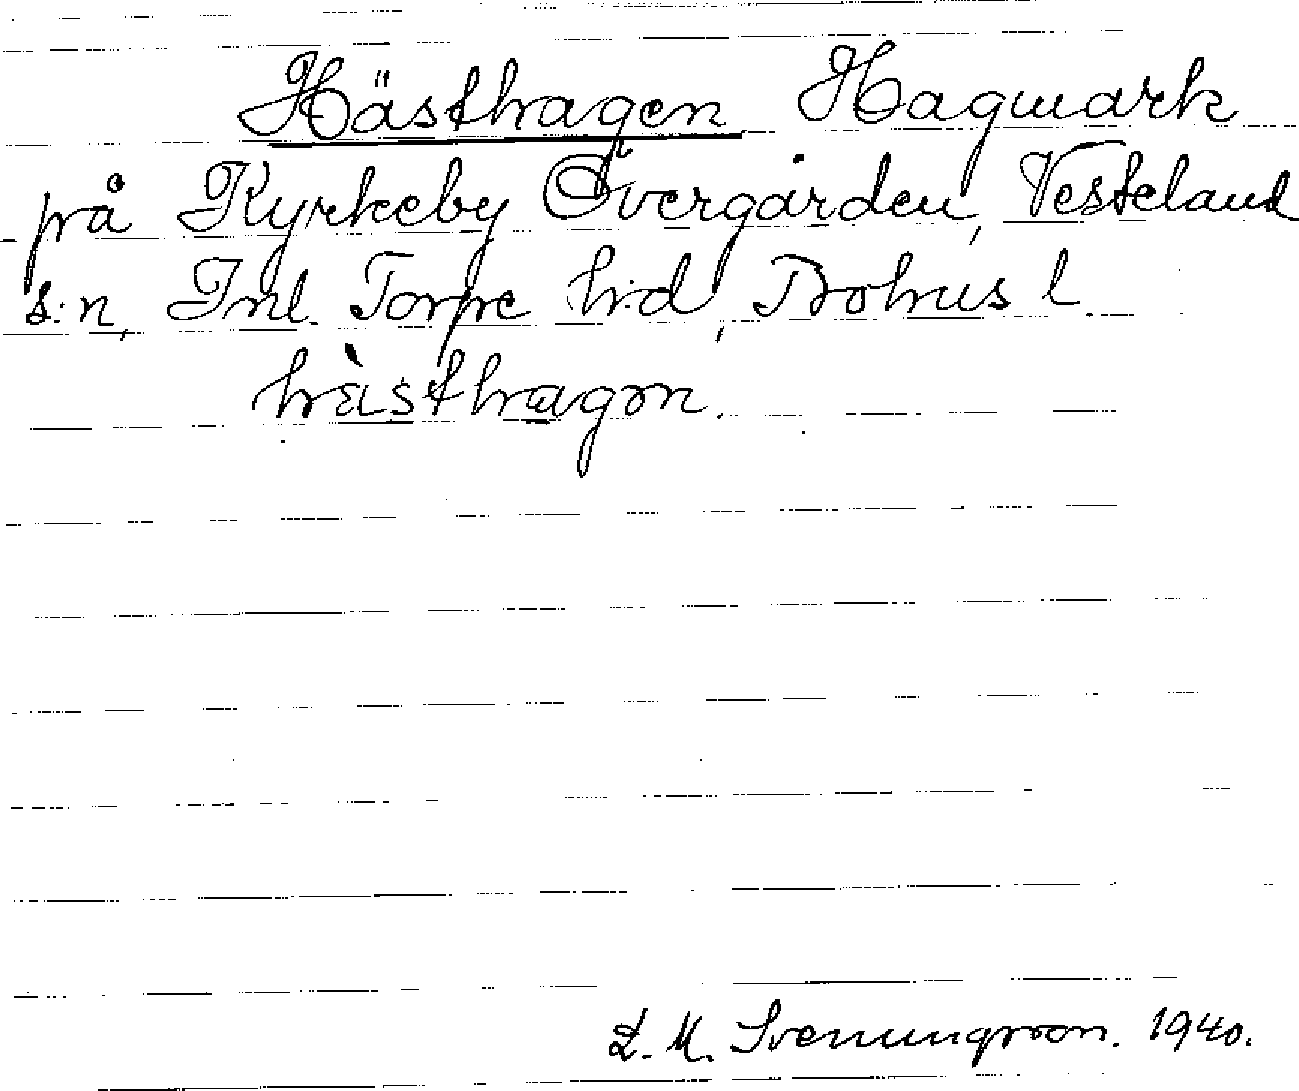 Hästhagen Hagmark
på Kyrkeby Övergården, Vesteland
s:n, Inl. Torpe h:d, Bohus l.
hὲsthagɔn.
L. M. Svenungsson. 1940.